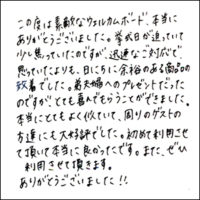 この度は素敵なウェルカムボード、本当に
ありがとうございました。挙式日が迫っていて
少し焦っていたのですが、迅速なご対応で
思っていたよりも、日にちに余裕のある商品の
致着でした。新夫婦へのプレゼントだった
のですが、とても喜んでもらうことができました。
本当にとてもよく似ていて、周りのゲストの
方達にも大好評でした。初めて利用させ
て頂いて本当に良かったです。また、ぜひ
利用させて頂きます。
ありがとうございました!!